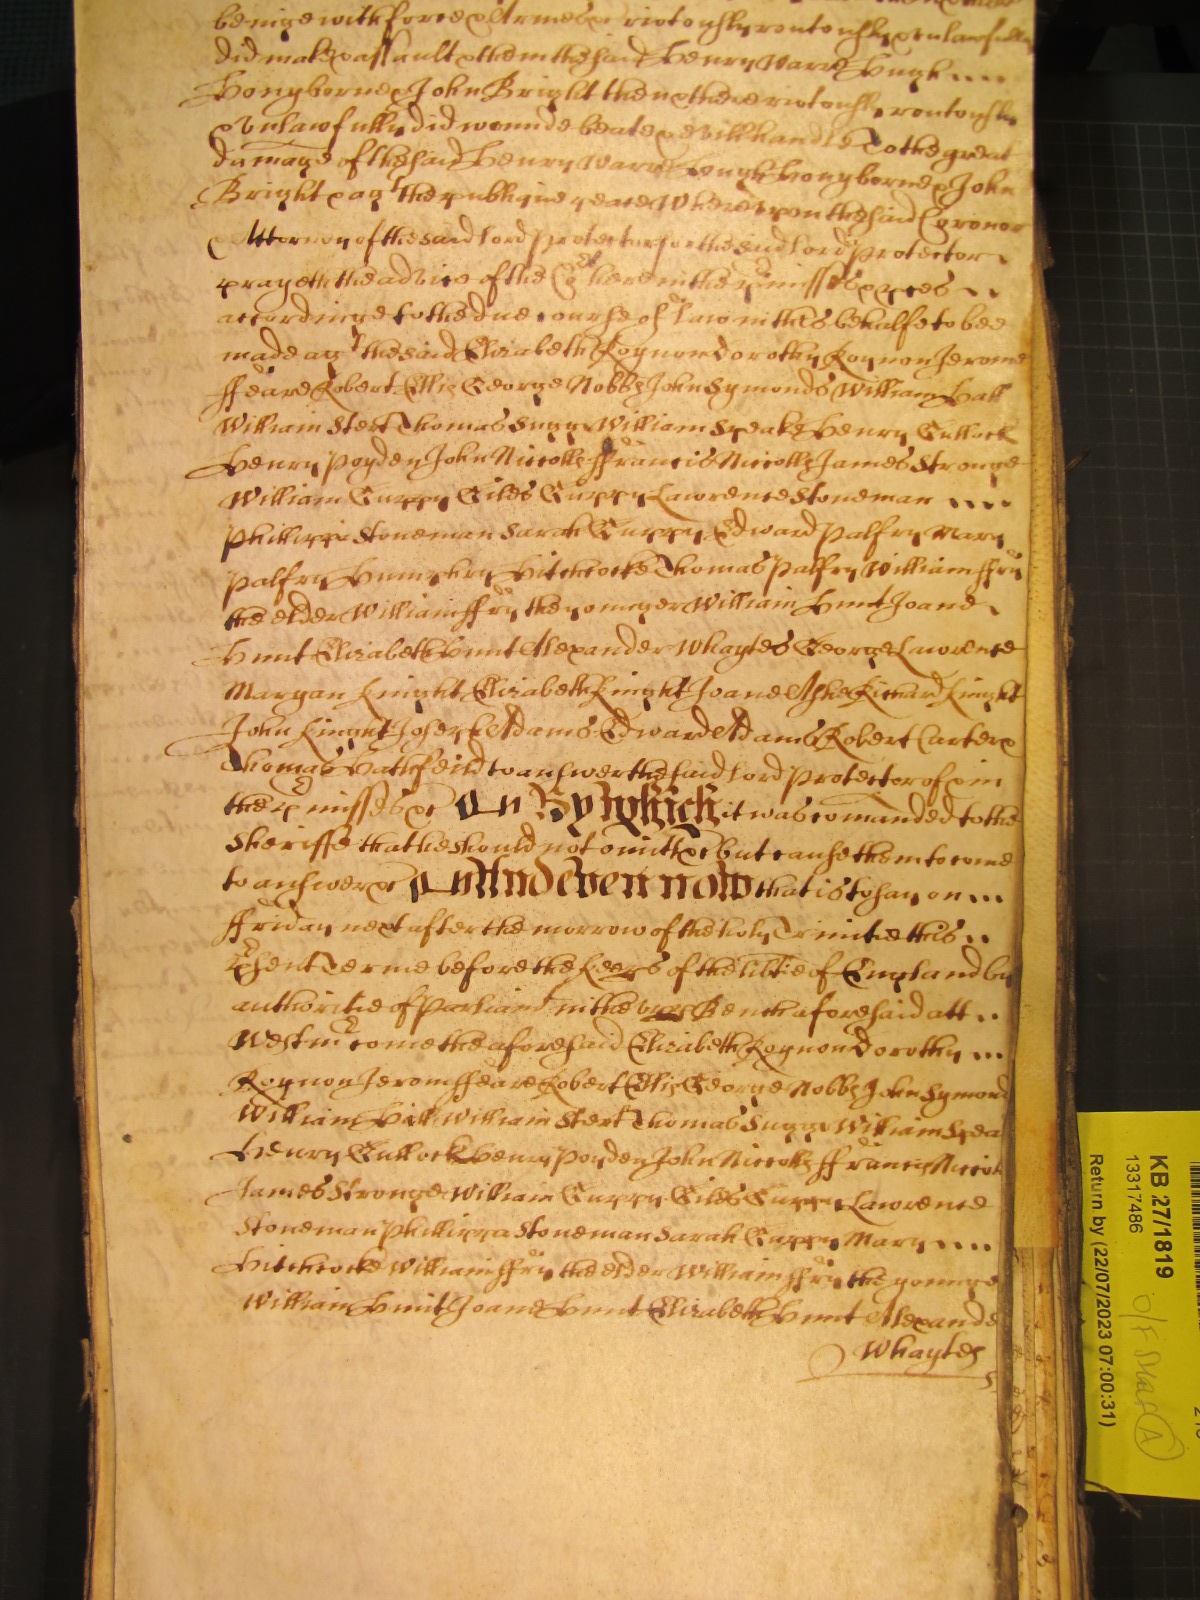 beinge with force & Armes &c riotously routously & unlawfully
did make assault & them the said Henry Warr Hugh
Hongborne & John Bright then & there riotously routously
& Unlawfully did wounde beate & evill handle To the great
damage of the said Henry Warr Hugh Hongborne & John
Bright & agt the publique peace Whereupon the said Coronor
& Attorney of the said lord Protector for the said lord Protector
prayeth the advice of the Cort here in the pmisses & pces
accordinge to the due course of Law in this behalfe to bee
made agt the said Elizabeth Roynon Dorothy Roynon Jerome
ffeare Robert Ellis George Nobbs John Symonds William Hall
William Stert Thomas Sugg William Speake Henry Gullock
Henry Poyden John Niccolls ffrancis Niccolls James Stronge
William Guppy Giles Guppy Lawrence Stoneman
Phillippa Stoneman Sarah Guppy Edward Palfry Mary
Palfry Humphry Hitchcocke Thomas Palfry William ffry
the elder William ffry the yonnger William Hunt Joane
Hunt Elizabeth Hunt Alexander Whaytes George Lawrence
Margan Knight Elizabeth Knight Joane Ashe Richard Knight
John Knight Joseph Adams Edward Adams Robert Carter &
Thomas Hathfeild to answer the said lord Protector of & in
the pmisses &c By Which it was comanded to the
Sheriffe that he should not omitt &c but cause them to come
to answer &c And even now that is to say on
ffriday next after the morrow of the holy Trinitie this
psent Terme before the Keeps of the libtie of England by
authoritie of Parliamt in the upp Bench aforesaid att
Westmr come the aforesaid Elizabeth Roynon Dorothy
Roynon Jerom ffeare Robert Ellis George Nobbs John Symond
William Hall William Stert Thomas Sugg William Spea
Henry Gullock Henry Poyden John Niccolls ffrancis Niccol
James Stronge William Guppy Giles Guppy Lawrence
Stoneman Phillippa Stoneman Sarah Guppy Mary
Hitchcocke William ffry the elder William ffry the yonnge
William Hunt Joane Hunt Elizabeth Hunt Alexande
Whaytes
KB 27/1819
13317486
Return by (22/07/2023 07:00:31)